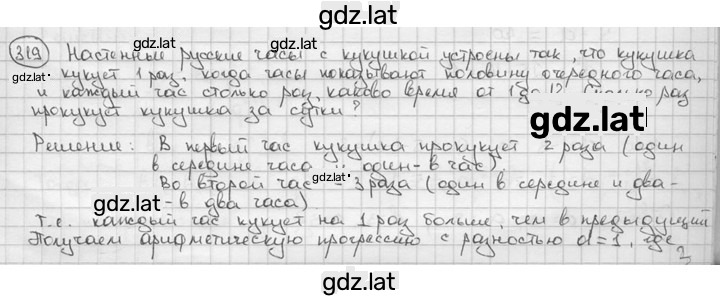 gdz.lat
319 Настенные русские часы с кукушкой устроены так, что кукушка
gdz.lat
кукует 1 раз, когда часы показывают половину очередного часа,
gdz.lat
и каждый час столько раз, каково время от 1 до 12. Сколько раз
прокукует кукушка за сутки?
gdz.lat
Решение: В первый час кукушка прокукует 2 раза (один
в середине часа и один - в час).
gdz.lat
Во второй час - 3 раза (один в середине и два -
- в два часа)
gdz.lat
Т.е. каждый час кукует на 1 раз больше, чем в предыдущий
Получаем арифметическую прогрессию с разностью d=1, где
2
gdz.lat